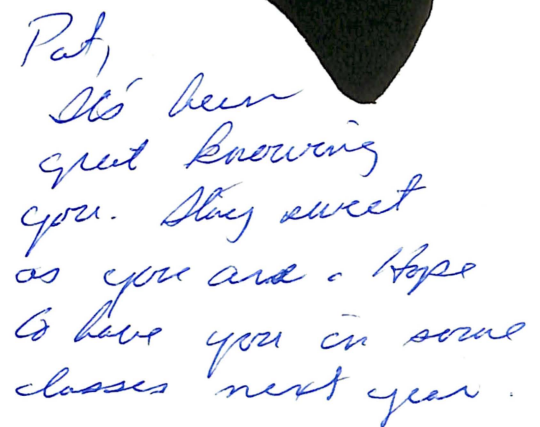 Pat,
It's been
great knowing
you. Stay sweet
as you are. Hope
to have you in some
classes next year.